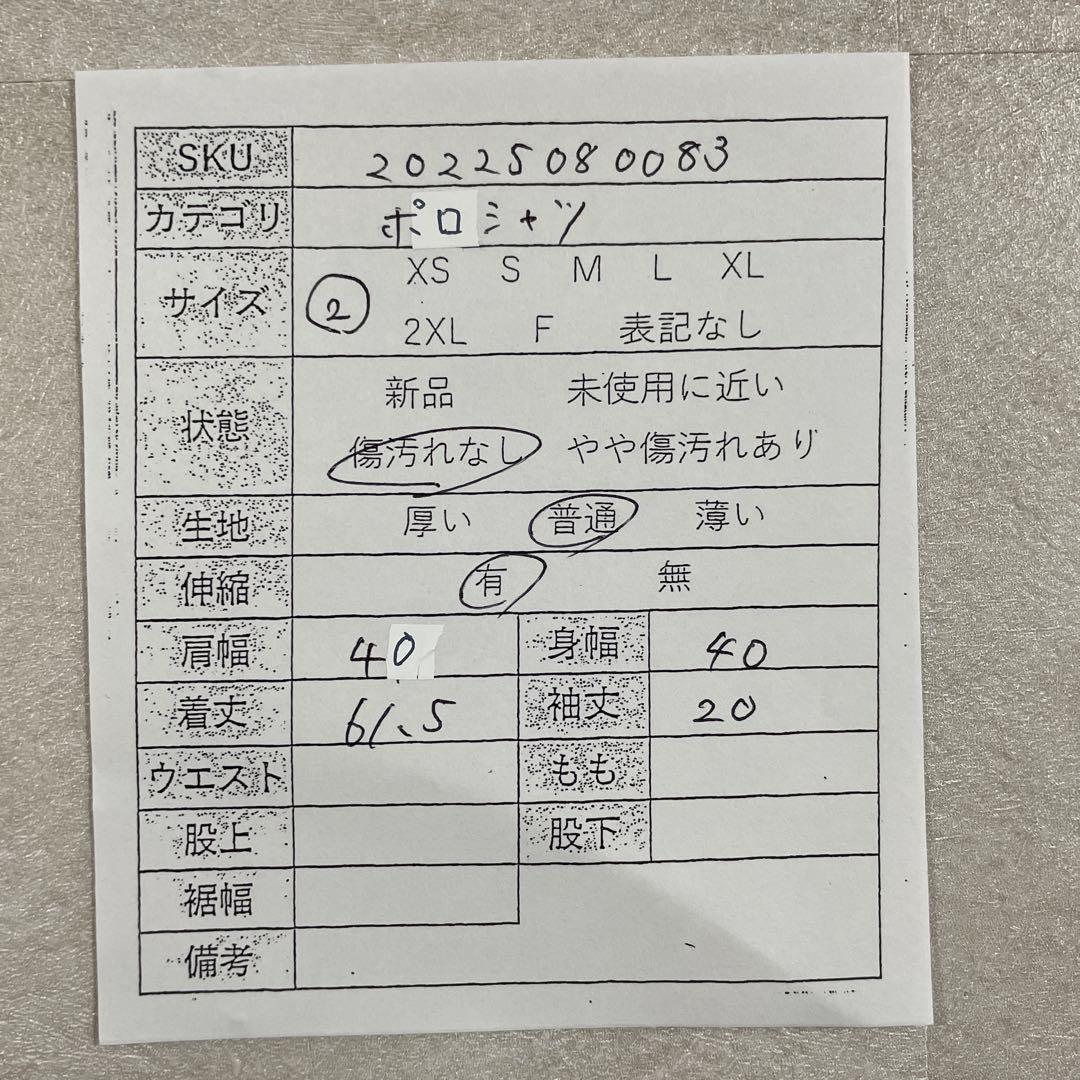 SKU 20225080083
カテゴリ ポロシャツ
XS S M L XL
サイズ 2
2XL F 表記なし
新品 未使用に近い
状態
傷汚れなし やや傷汚れあり
生地 厚い 普通 薄い
伸縮 有 無
肩幅 40 身幅 40
着丈 61.5 袖丈 20
ウエスト もも
股上 股下
裾幅
備考